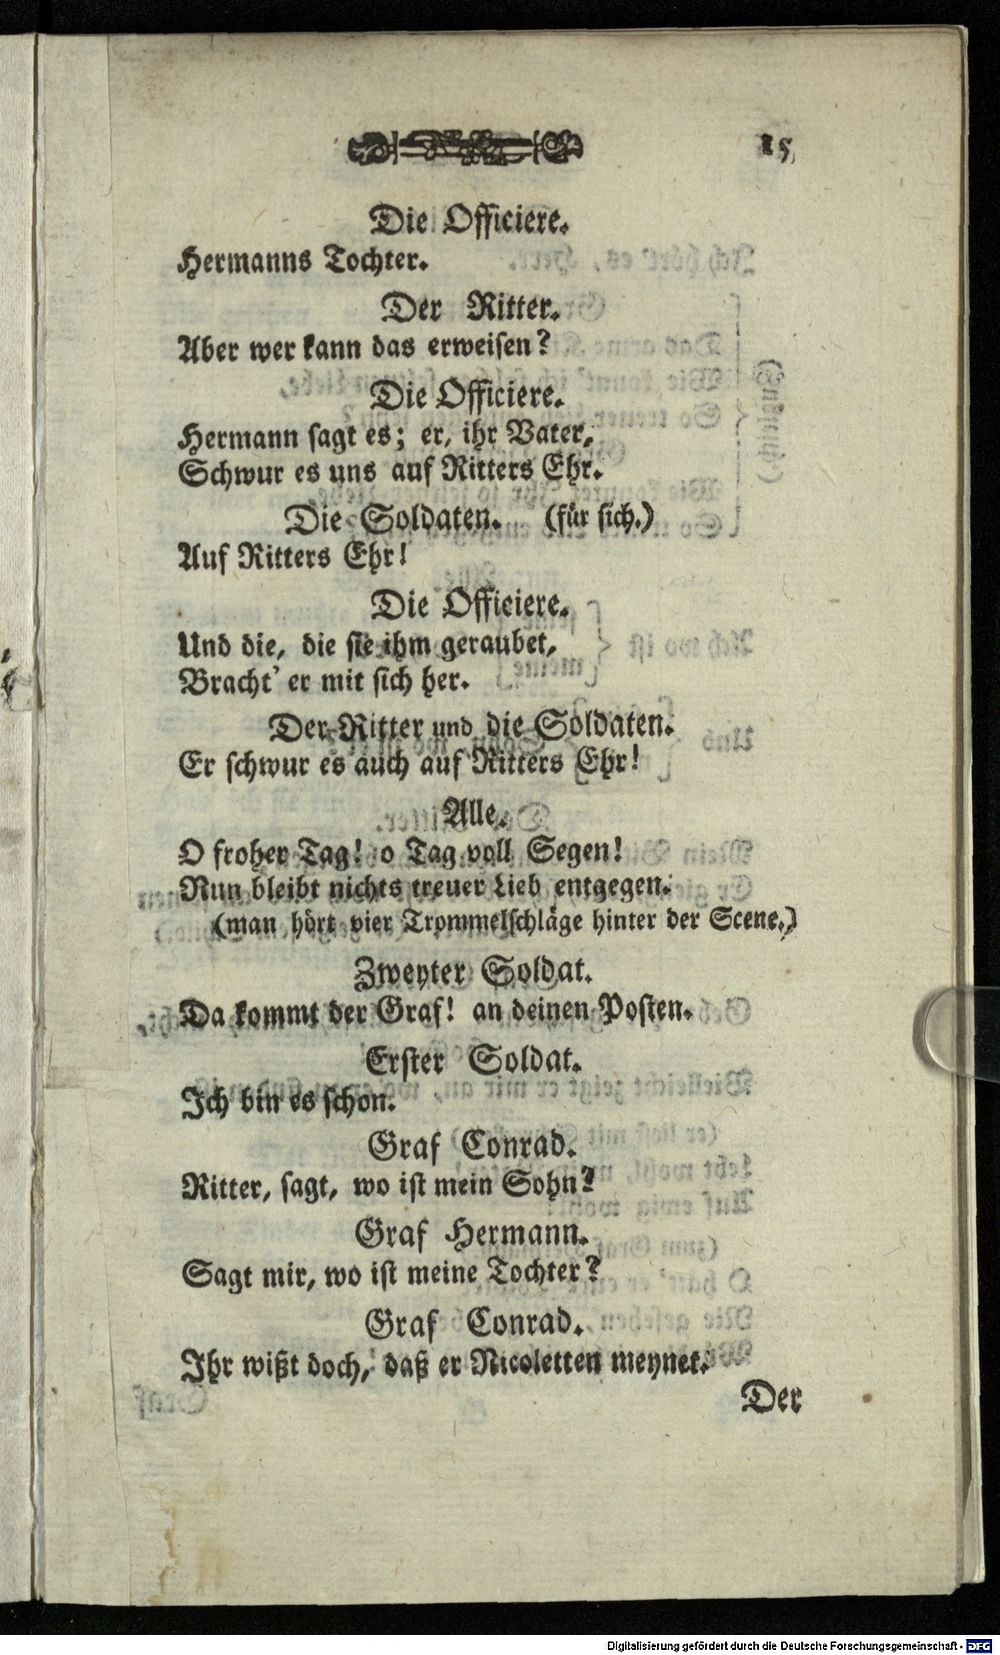 15
Die Officiere.
Hermanns Tochter.
Der Ritter.
Aber wer kann das erweiſen?
Die Officiere.
Hermann ſagt es; er, ihr Vater,
Schwur es uns auf Ritters Ehr.
Die Soldaten. (für ſich.)
Auf Ritters Ehr!
Die Officiere.
Und die, die ſie ihm geraubet,
Bracht' er mit ſich her.
Der Ritter und die Soldaten.
Er ſchwur es auch auf Ritters Ehr!
Alle.
O froher Tag! o Tag voll Segen!
Nun bleibt nichts treuer Lieb entgegen.
(man hört vier Trommelſchläge hinter der Scene.)
Zweyter Soldat.
Da kommt der Graf! an deinen Poſten.
Erſter Soldat.
Ich bin es ſchon.
Graf Conrad.
Ritter, ſagt, wo iſt mein Sohn?
Graf Hermann.
Sagt mir, wo iſt meine Tochter?
Graf Conrad.
Ihr wißt doch, daß er Nicoletten meynet.
Der
Digitalisierung gefördert durch die Deutsche Forschungsgemeinschaft - DFG